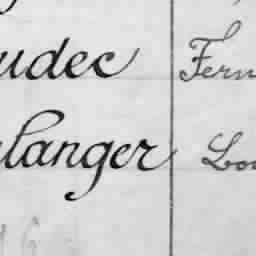 udec Fern
langer Lou